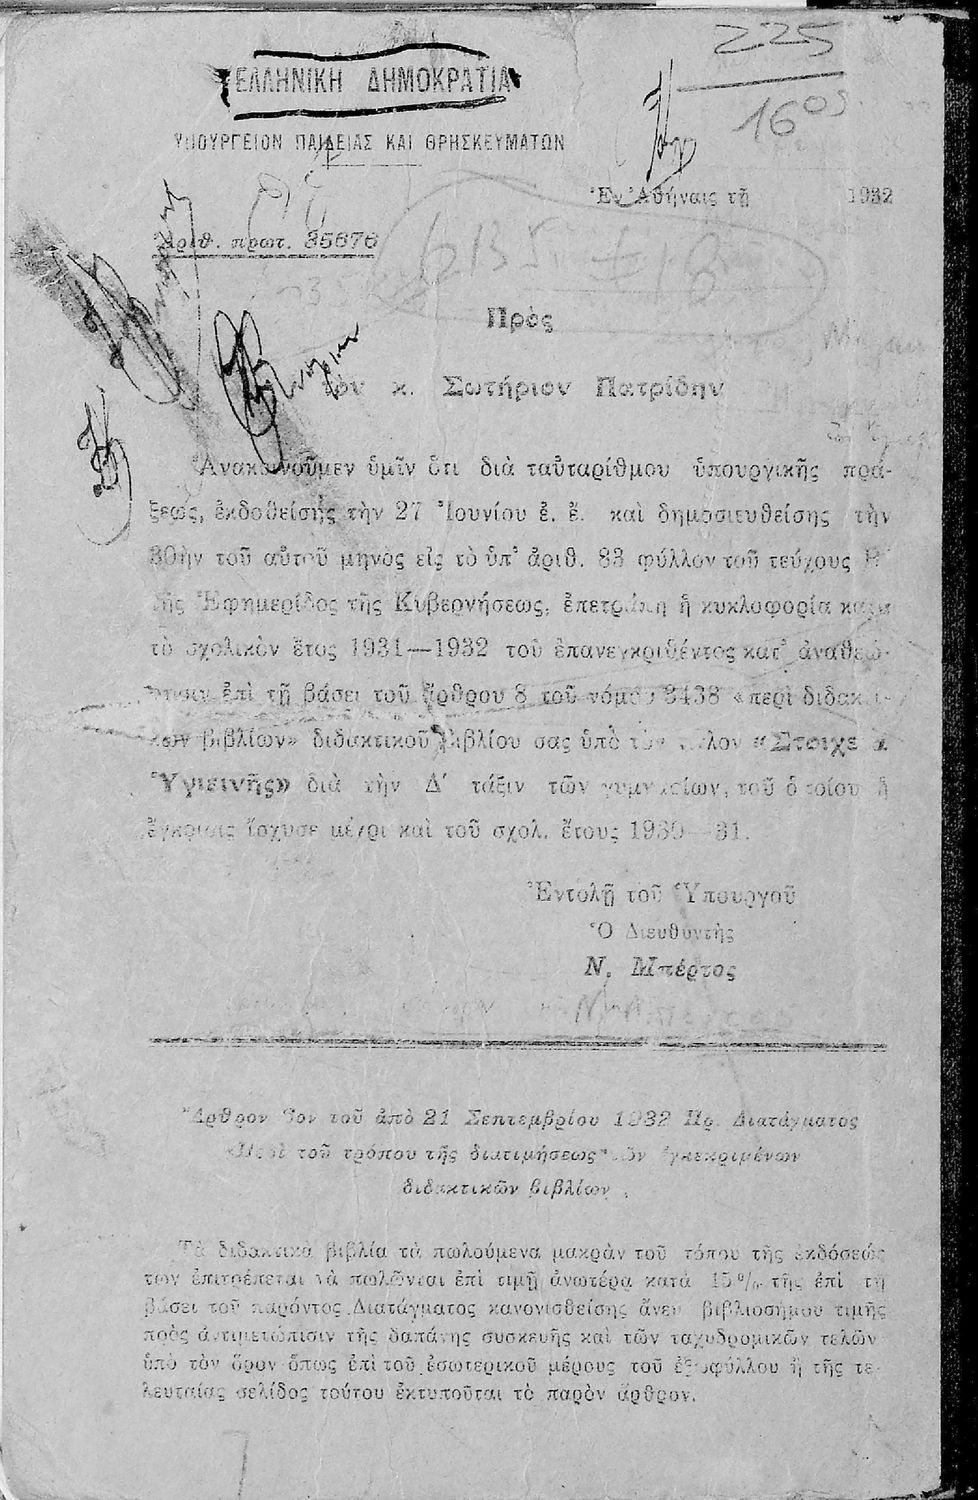 225
1605
ΕΛΛΗΝΙΚΗ ΔΗΜΟΚΡΑΤΙΑ
ΥΠΟΥΡΓΕΙΟΝ ΠΑΙΔΕΙΑΣ ΚΑΙ ΘΡΗΣΚΕΥΜΑΤΩΝ
Ἐν Ἀθήναις τῇ 1932
Ἀριθ. πρωτ. 35676
Πρὸς
τὸν κ. Σωτήριον Πατρίδην
Ἀνακοινοῦμεν ὑμῖν ὅτι διὰ ταὐταρίθμου ὑπουργικῆς πρά-
ξεως, ἐκδοθείσης τὴν 27 Ἰουνίου ἐ. ἔ. καὶ δημοσιευθείσης τὴν
30ὴν τοῦ αὐτοῦ μηνὸς εἰς τὸ ὑπ' ἀριθ. 83 φύλλον τοῦ τεύχους Β'
τῆς Ἐφημερίδος τῆς Κυβερνήσεως, ἐπετράπη ἡ κυκλοφορία κατὰ
τὸ σχολικὸν ἔτος 1931—1932 τοῦ ἐπανεγκριθέντος κατ' ἀναθεώ-
ρησιν ἐπὶ τῇ βάσει τοῦ ἄρθρου 8 τοῦ νόμου 3438 «περὶ διδακτι-
κῶν βιβλίων» διδακτικοῦ βιβλίου σας ὑπὸ τὸν τίτλον «Στοιχεῖα
Ὑγιεινῆς» διὰ τὴν Δ' τάξιν τῶν γυμνασίων, τοῦ ὁποίου ἡ
ἔγκρισις ἴσχυσε μέχρι καὶ τοῦ σχολ. ἔτους 1930—31.
Ἐντολῇ τοῦ Ὑπουργοῦ
Ὁ Διευθυντὴς
Ν. Μπέρτος
Ἄρθρον τοῦ ἀπὸ 21 Σεπτεμβρίου 1932 Πρ. Διατάγματος
«Περὶ τοῦ τρόπου τῆς διατιμήσεως τῶν ἐγκεκριμένων
διδακτικῶν βιβλίων».
Τὰ διδακτικὰ βιβλία τὰ πωλούμενα μακρὰν τοῦ τόπου τῆς ἐκδόσεώς
των ἐπιτρέπεται νὰ πωλῶνται ἐπὶ τιμῇ ἀνωτέρᾳ κατὰ 15% τῆς ἐπὶ τῇ
βάσει τοῦ παρόντος Διατάγματος κανονισθείσης ἄνευ βιβλιοσήμου τιμῆς
πρὸς ἀντιμετώπισιν τῆς δαπάνης συσκευῆς καὶ τῶν ταχυδρομικῶν τελῶν
ὑπὸ τὸν ὅρον ὅπως ἐπὶ τοῦ ἐσωτερικοῦ μέρους τοῦ ἐξωφύλλου ἢ τῆς τε-
λευταίας σελίδος τούτου ἐκτυποῦται τὸ παρὸν ἄρθρον.